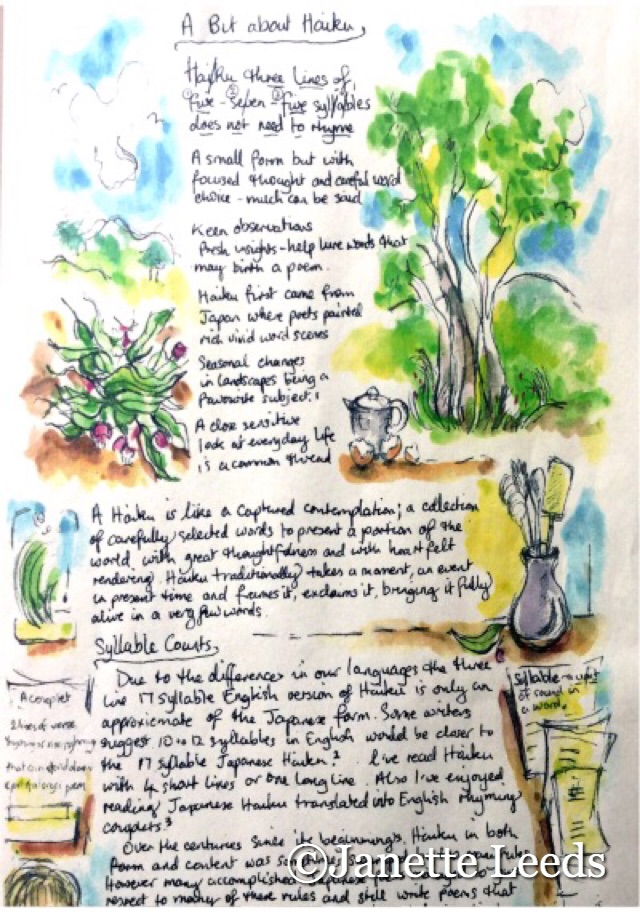 A Bit about Haiku
Haiku three lines of
five - seven - five syllables
does not need to rhyme
A small form but with
focused thought and careful word
choice - much can be said
Keen observations
Fresh insights - help lure words that
may birth a poem.
Haiku first came from
Japan where poets painted
rich vivid word scenes
Seasonal changes
in landscapes being a
favourite subject.1
A close sensitive
look at everyday life
is a common thread
A Haiku is like a captured contemplation; a collection
of carefully selected words to present a portion of the
world, with great thoughtfulness and with heart felt
rendering. Haiku traditionally takes a moment, an event
in present time and frames it, exclaims it, bringing it fully
alive in a very few words.
Syllable Counts
Due to the differences in our languages the three
line 17 syllable English version of Haiku is only an
approximate of the Japanese form. Some writers
suggest 10 to 12 syllables in English would be closer to
the 17 syllable Japanese Haiku.2 I've read Haiku
with 4 short lines or one long line. Also I've enjoyed
reading Japanese Haiku translated into English rhyming
couplets.3
Over the centuries since its beginnings, Haiku in both
form and content was
However many accomplished Japanese
respect to many of these rules and still write poems that
A couplet
2 lines of verse
rhyming or non rhyming
that can stand alone
Syllable - a unit
of sound in
a word.
©Janette Leeds